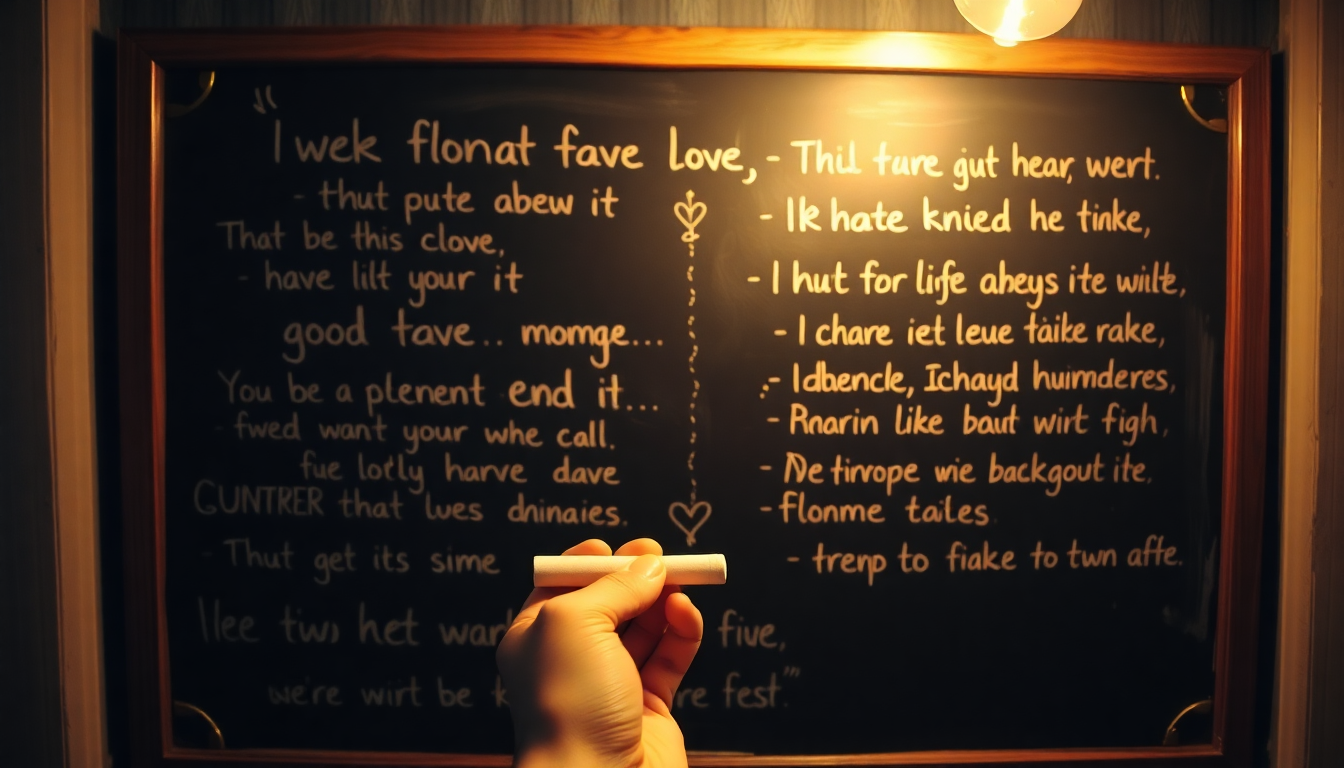 "
I wek flonat fave love,
- thut pute abew it
That be this clove,
- have lilt your it
good tave.. momge...
You be a plenent end it...
- fwed want your whe call.
fue lotly harve dave
GUNTRER that lues dninaies.
- Thut get its sime
llee twı het war five,
we're wirt be k re fest."
- Thil ture gut hear, wert.
- Ik hate knied he tinke,
- I hut for life aheys ite wilte,
- I chare iet leue taike rake,
- Idbencle, Ichayd huimderes,
- Rnarin like baut wirt figh,
- De tirrope wie backgout ite.
- flonme tailes.
- trenp to fiake to twn affe.